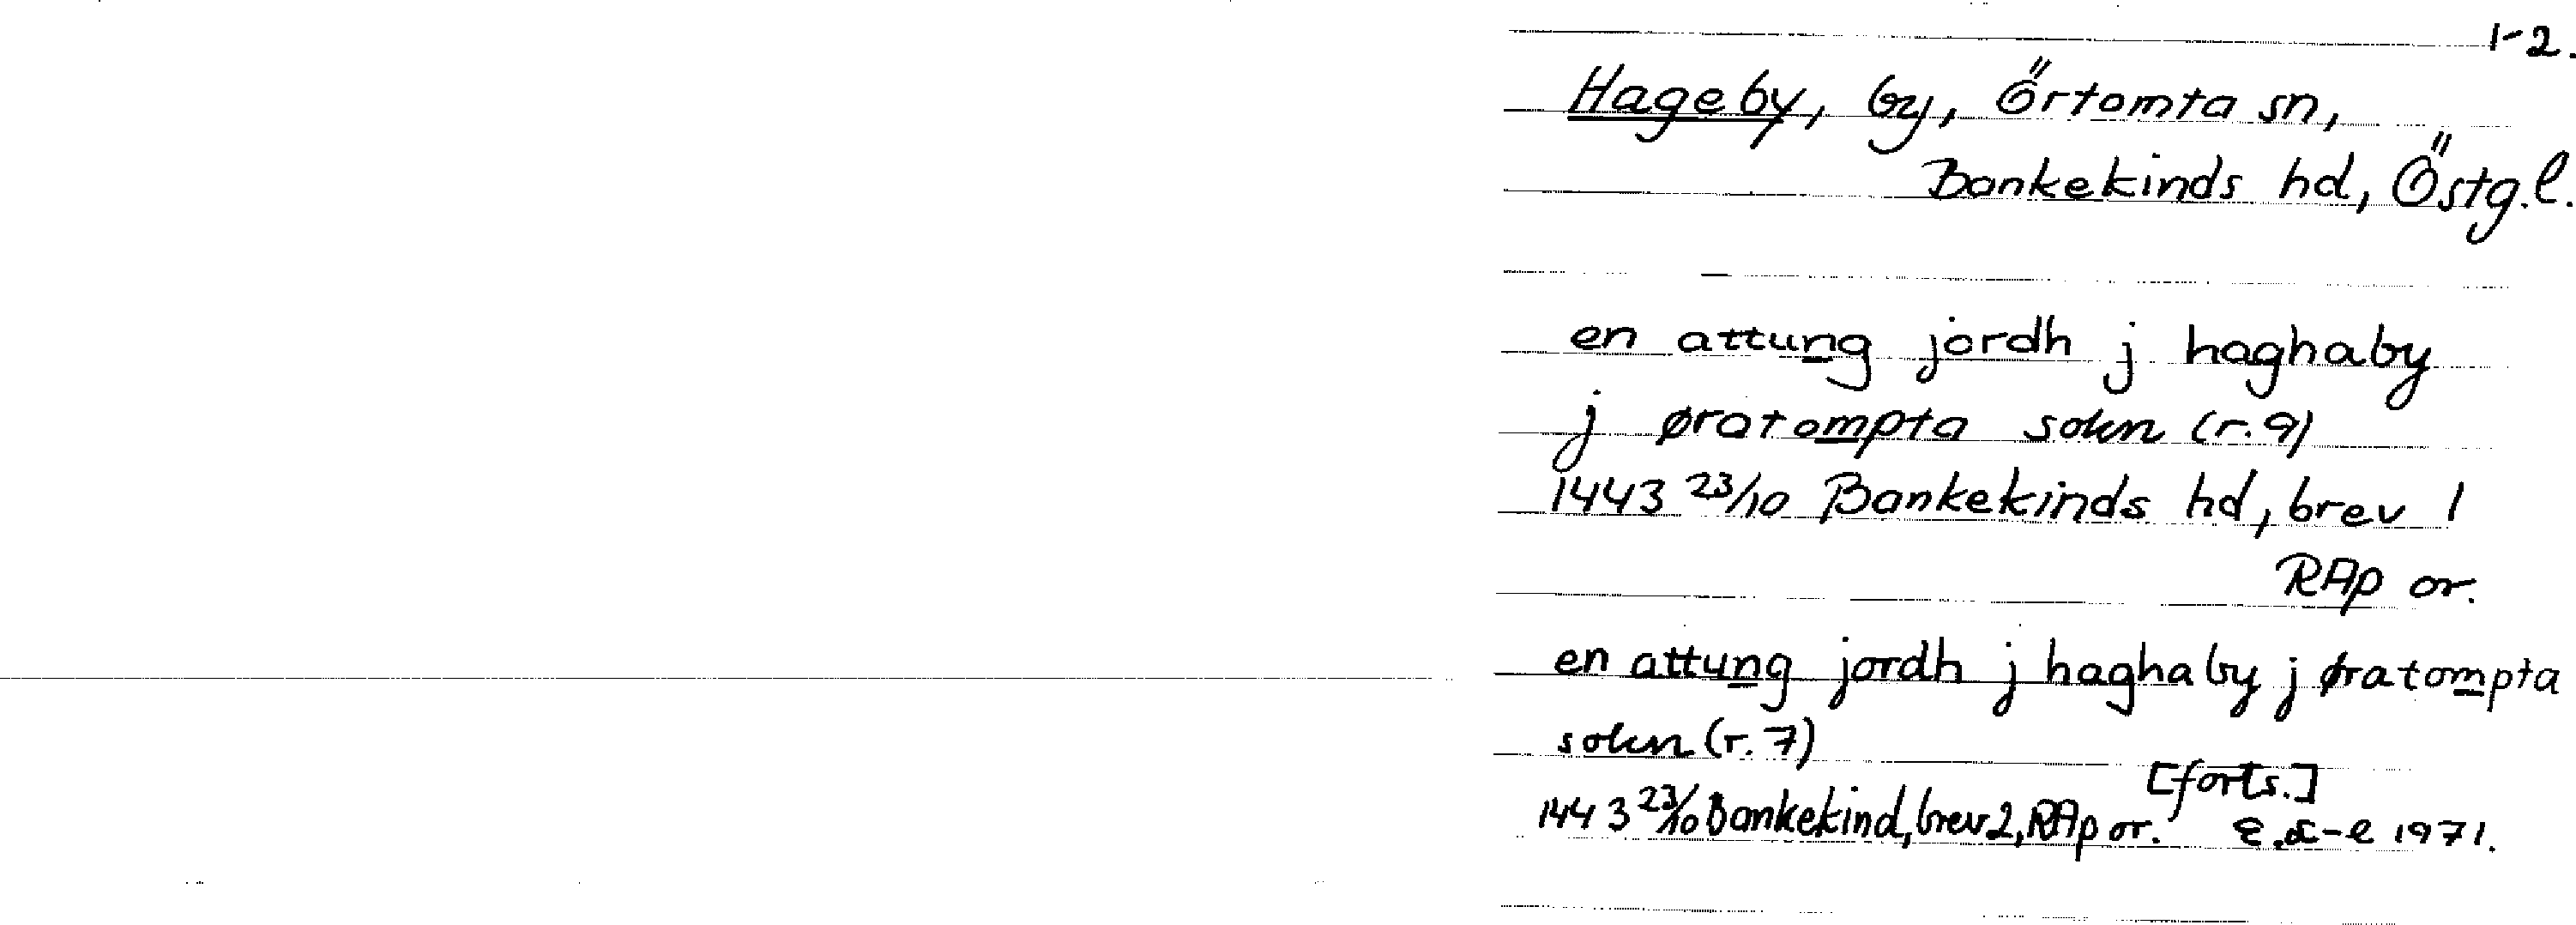 1-2.
Hageby, by, Örtomta sn,
Bankekinds hd, Östg.l.
en attung jordh j haghaby
j øratompta sokn (r. 9)
1443 23/10 Bankekinds hd, brev 1
RAp or.
en attung jordh j haghaby j øratompta
sokn (r. 7)
[forts.]
1443 23/10 Bankekind, brev 2, RAp or. 1971.